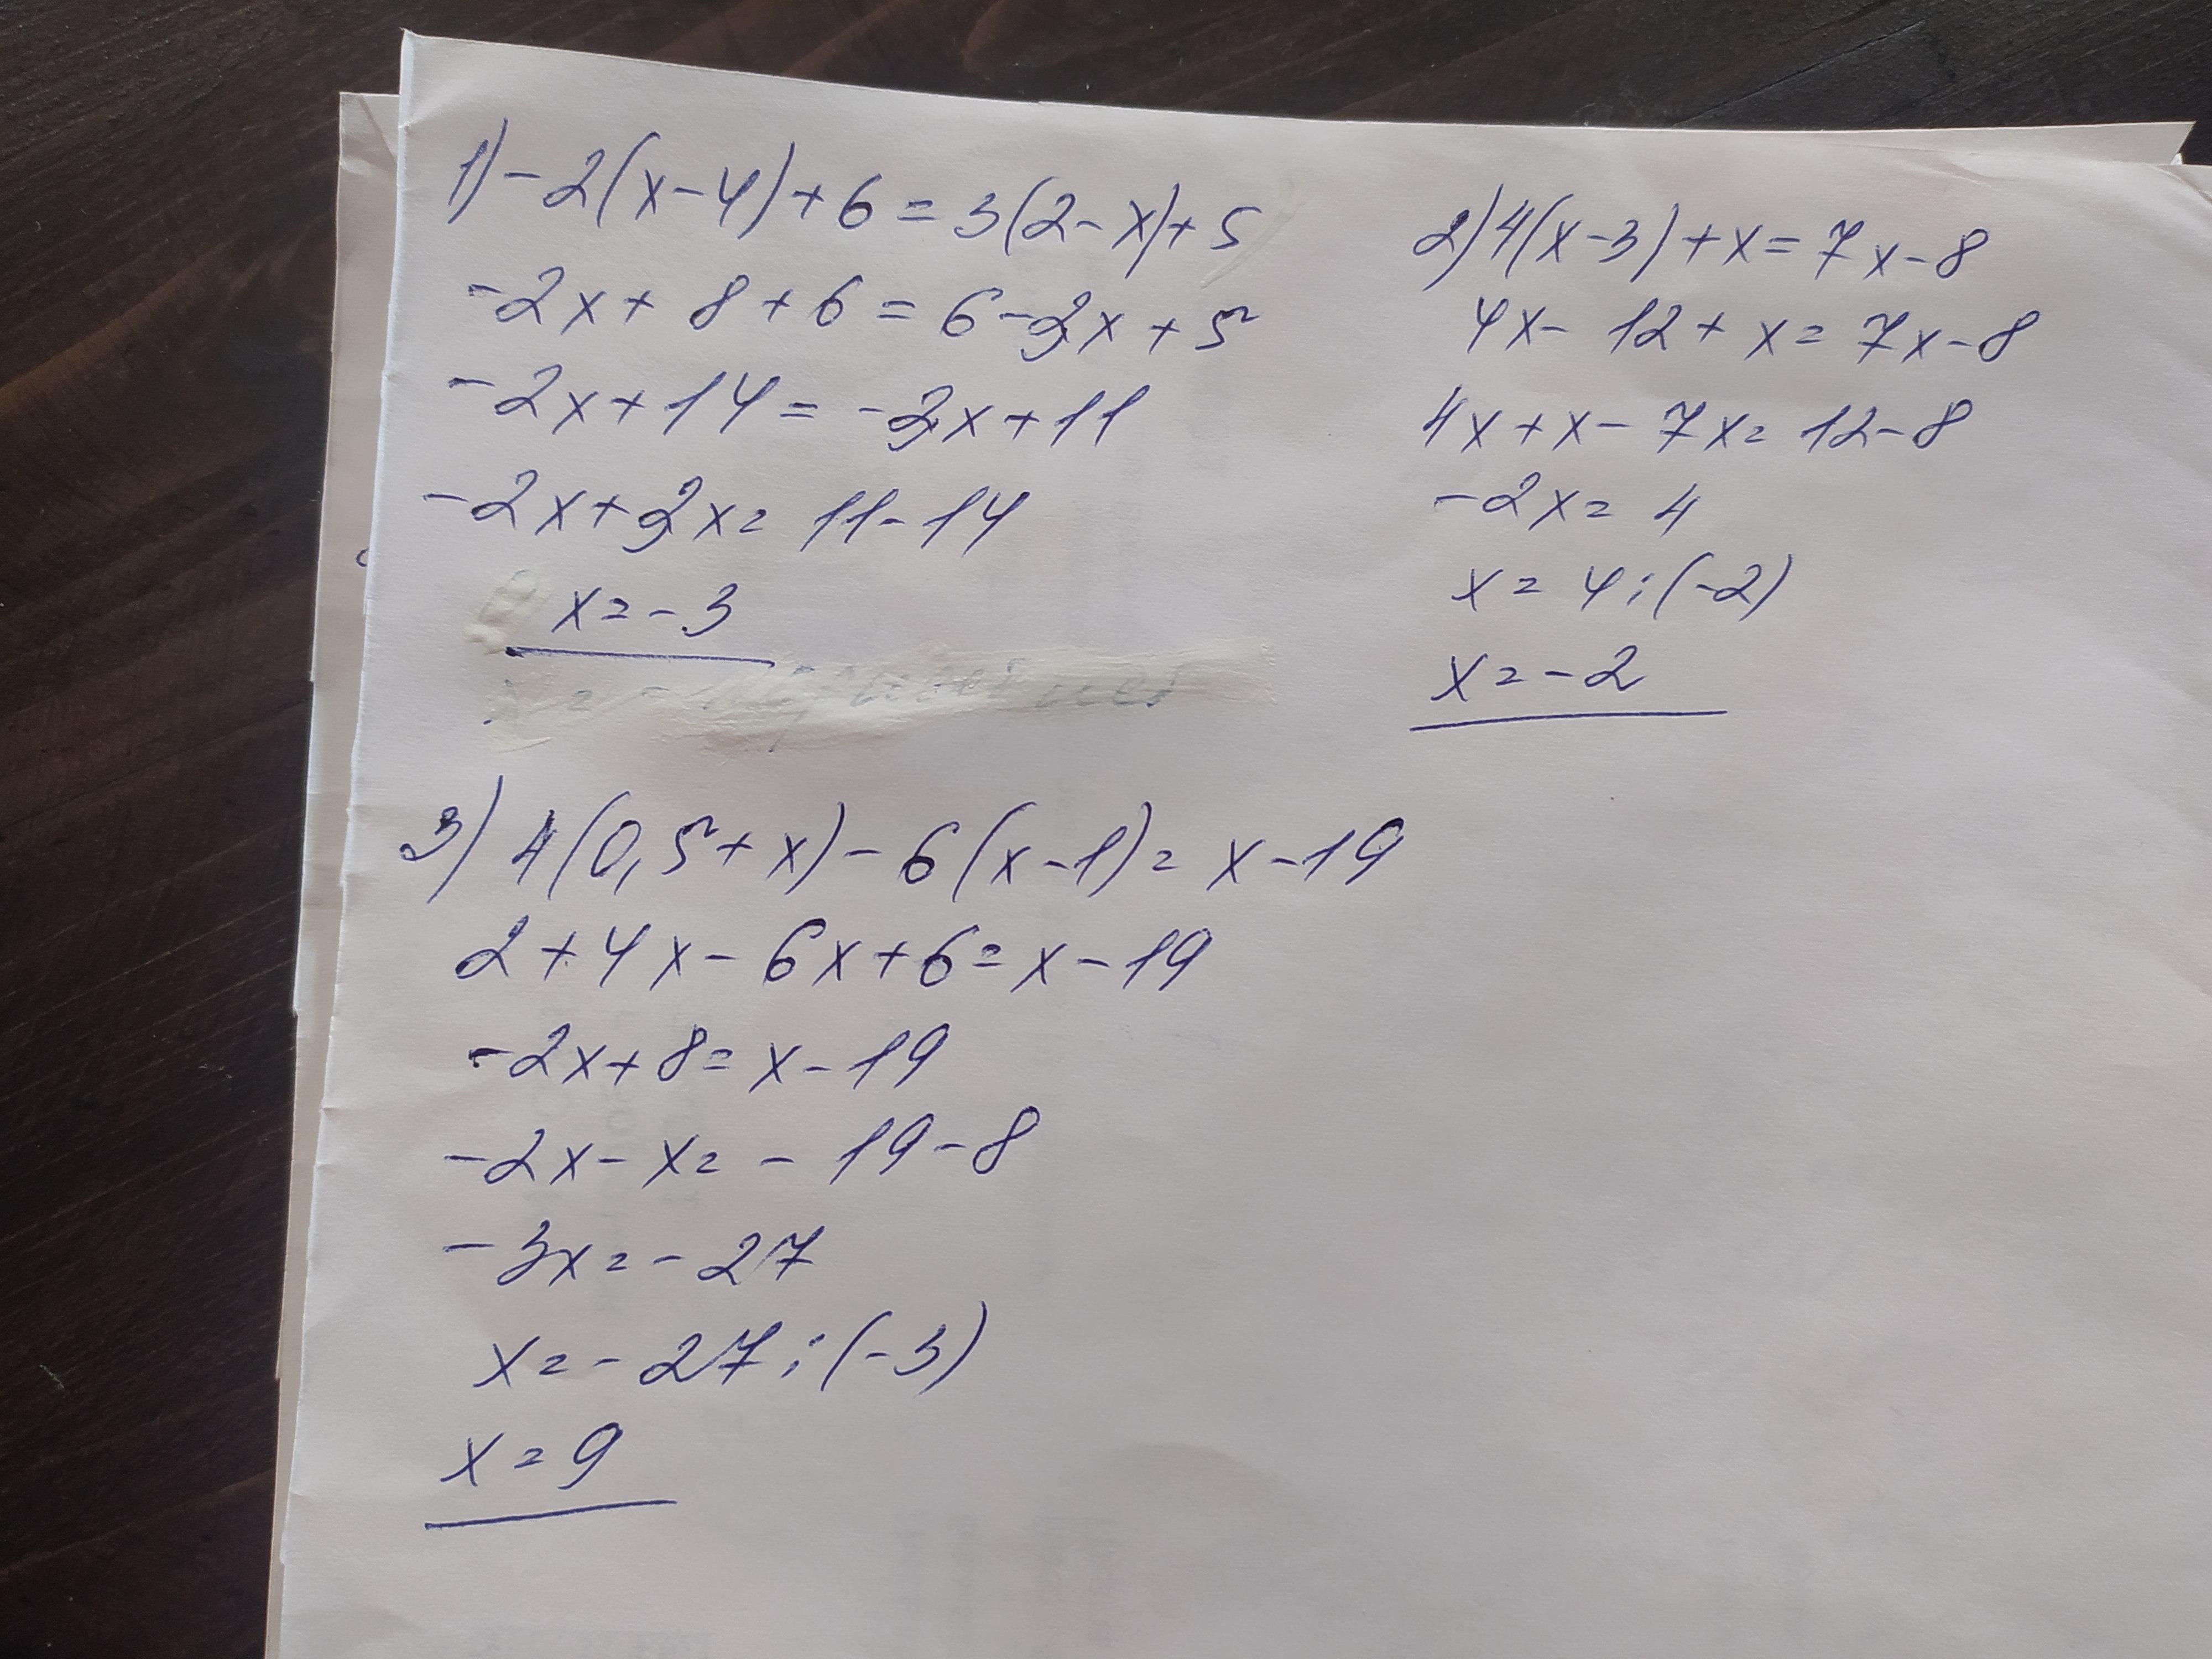 1) -2(x-4)+6=3(2-x)+5
-2x+8+6=6-3x+5
-2x+14=-3x+11
-2x+3x=11-14
x=-3
2) 4(x-3)+x=7x-8
4x-12+x=7x-8
4x+x-7x=12-8
-2x=4
x=4:(-2)
x=-2
3) 4(0,5+x)-6(x-1)=x-19
2+4x-6x+6=x-19
-2x+8=x-19
-2x-x=-19-8
-3x=-27
x=-27:(-3)
x=9